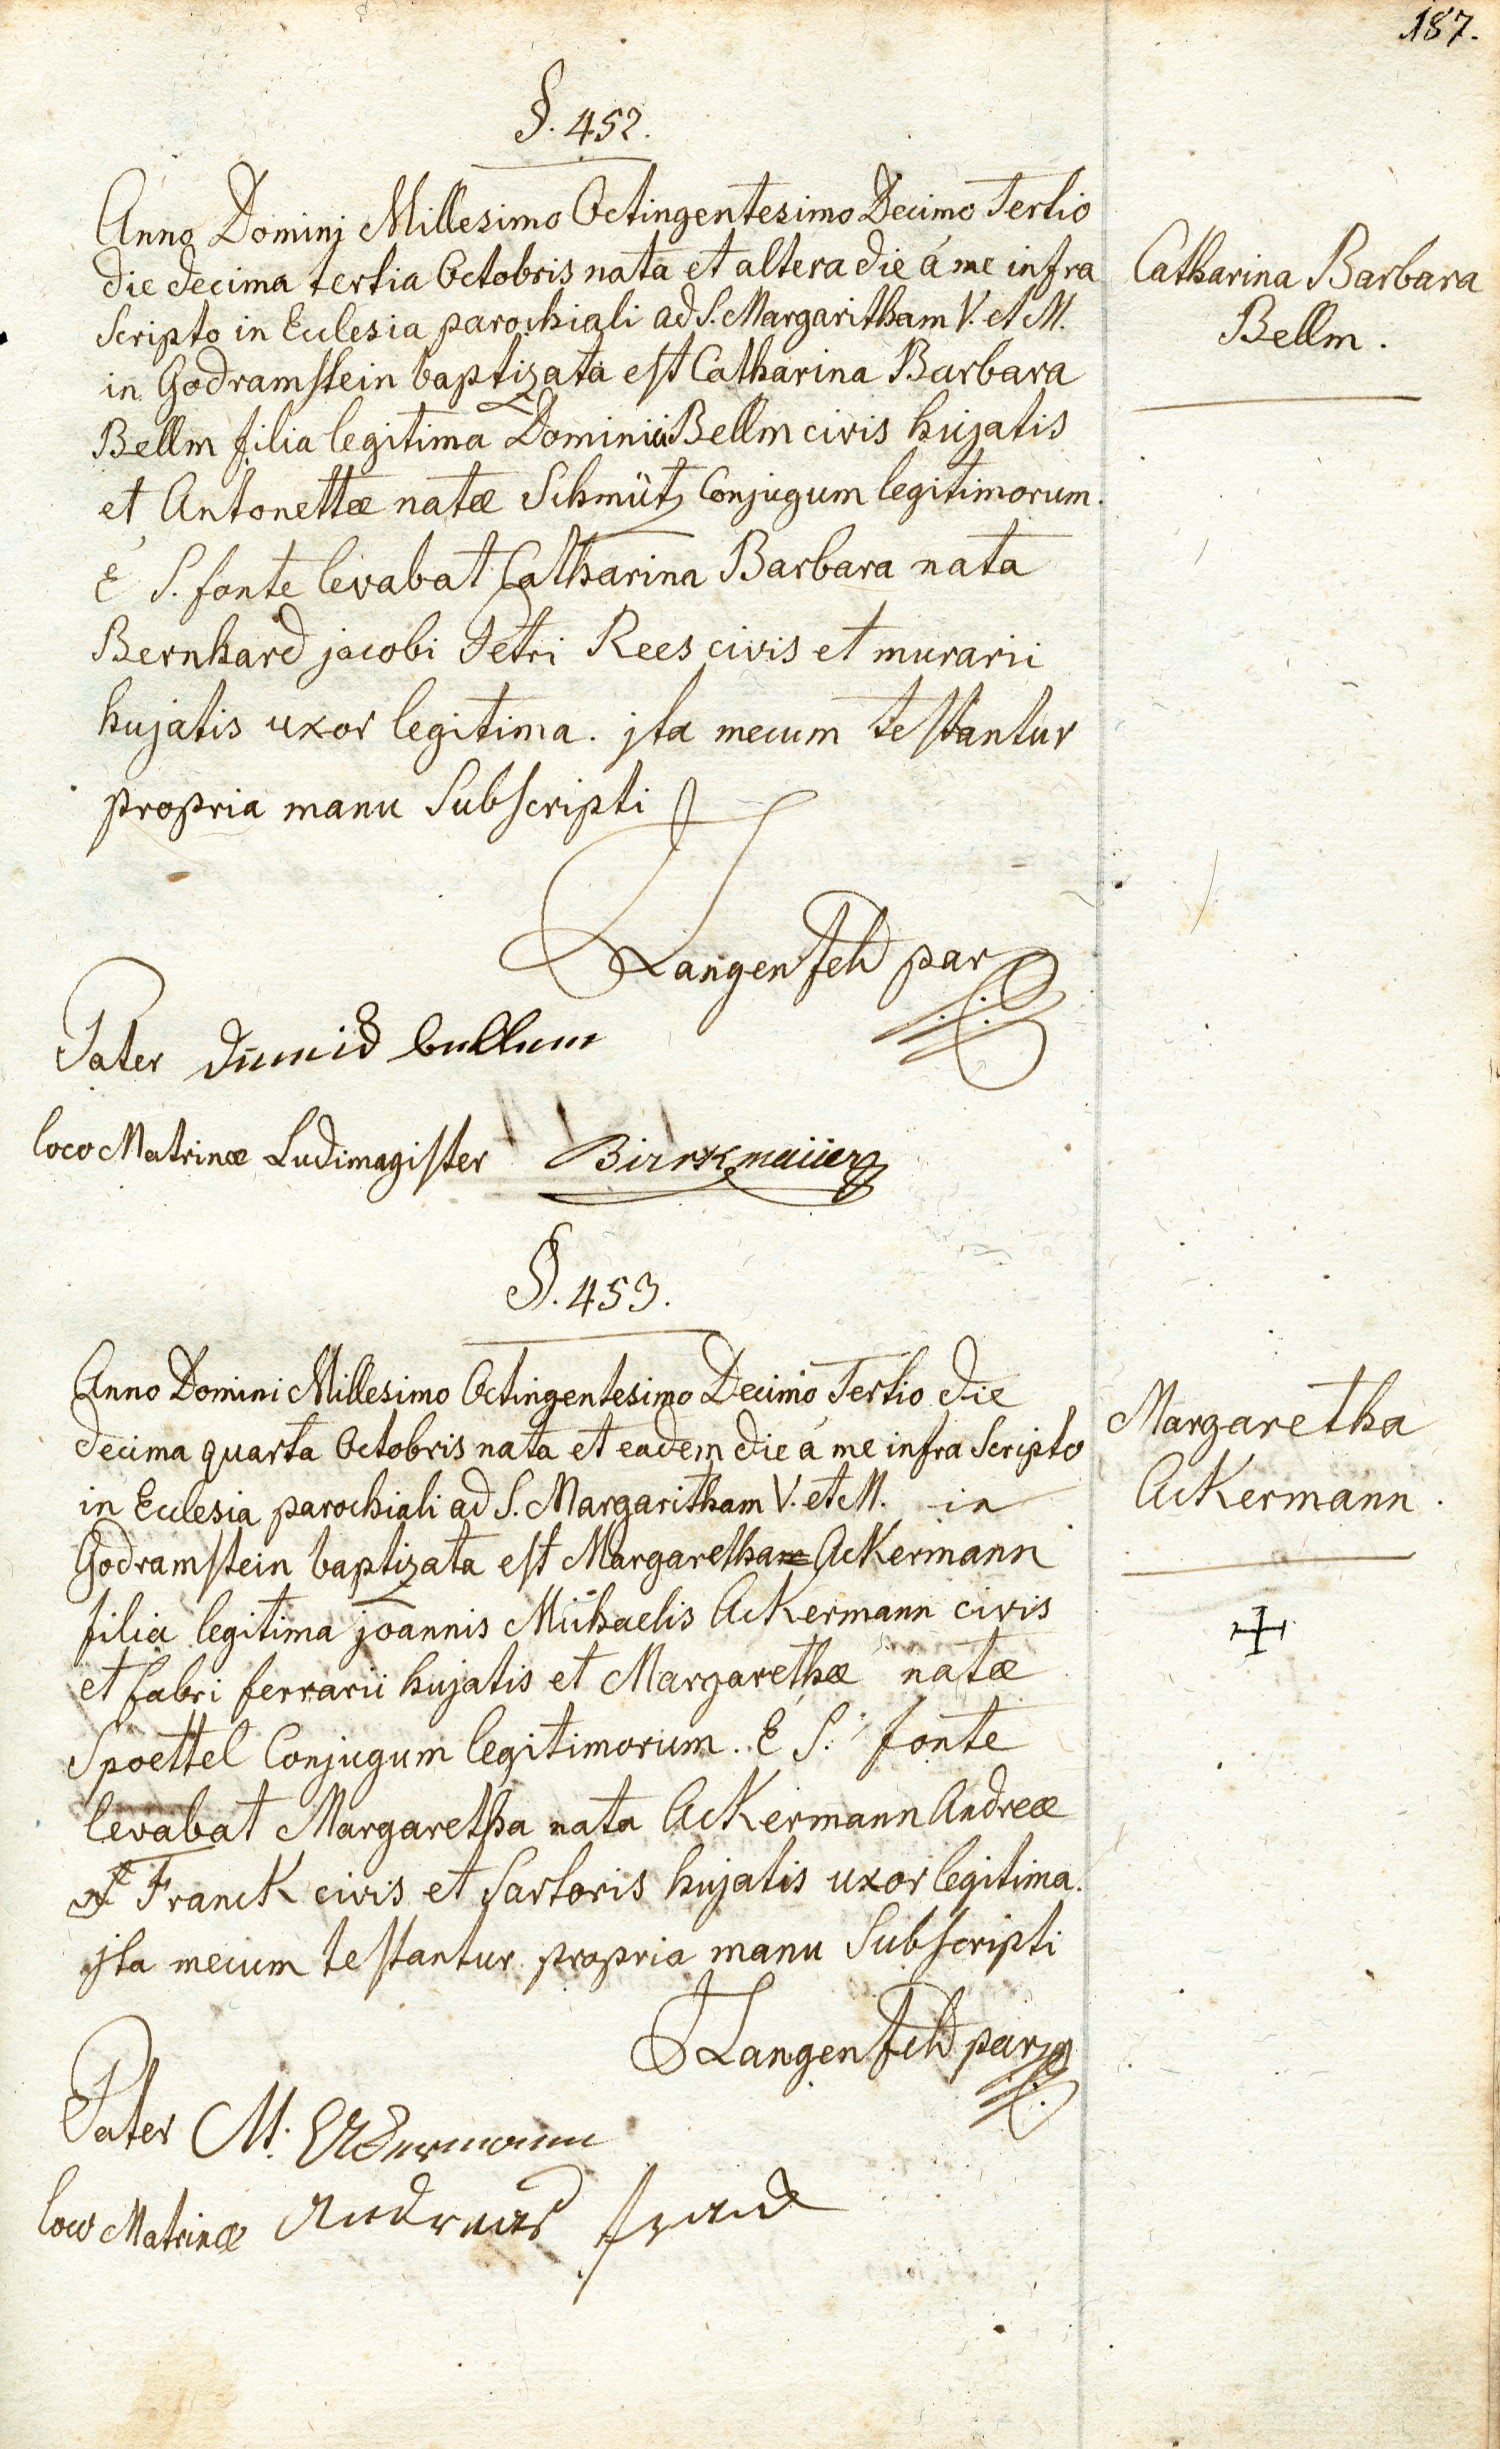 187.
§. 452.
Anno Dominj Millesimo Octingentesimo Decimo Tertio
die decima tertia Octobris nata et altera die á me infra
Scripto in Ecclesia parochiali ad S. Margaritham V. et M.
in Godramstein baptizata est Catharina Barbara
Bellm filia legitima Dominici Bellm civis hujatis
et Antonettæ natæ Schmütz Conjugum legitimorum.
É S. fonte levabat Catharina Barbara nata
Bernhard jacobi Petri Rees civis et murarii
hujatis uxor legitima. jta mecum testantur
propria manu Subscripti
Catharina Barbara
Bellm.
Langenfeld par
Pater
loco Matrinæ Ludimagister Birkmaiier
§. 453.
Anno Domini Millesimo Octingentesimo Decimo Tertio die
decima quarta Octobris nata et eadem die á me infra Scripto
in Ecclesia parochiali ad S. Margaritham V. et M. in
Godramstein baptizata est Margaretha Ackermann
filia legitima joannis Michaelis Ackermann civis
et fabri ferrarii hujatis et Margarethæ natæ
Spoettel Conjugum legitimorum. É S. fonte
levabat Margaretha nata Ackermann Andreæ
Franck civis et Sartoris hujatis uxor legitima.
jta mecum testantur propria manu Subscripti
Margaretha
Ackermann.
Langenfeld par
Pater M. Ackermann
loco Matrinæ Andreas Franck